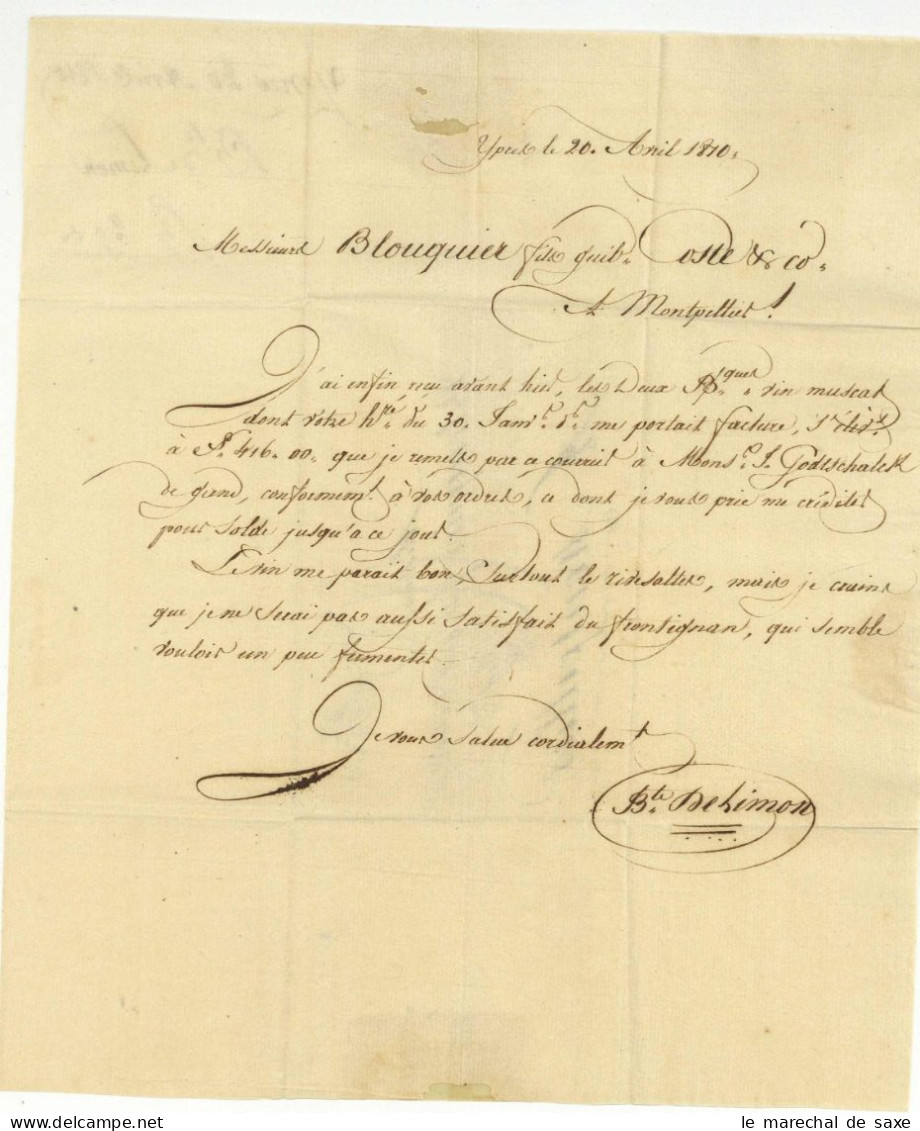 Ypres le 20. Avril 1810.
Messieurs Blouquier fils guil. Coste & co.
A Montpellier
J'ai enfin reçu avant hier, les deux Bques vin muscat
dont votre du 30. Janvr. dr. me portait facture, s'élevt.
à F. 416.00. que je remets par ce courrier à Monsr. J. Godtschalck
de gand, conformemt. à vos ordres, ce dont je vous prie me créditer
pour solde jusqu'à ce jour.
Le vin me paraît bon, surtout le rivesaltes, mais je crains
que je ne serai pas aussi satisfait du frontignan, qui semble
vouloir un peu fumenter.
Je vous salue cordialemt
Bte. DeLimon
le marechal de saxe